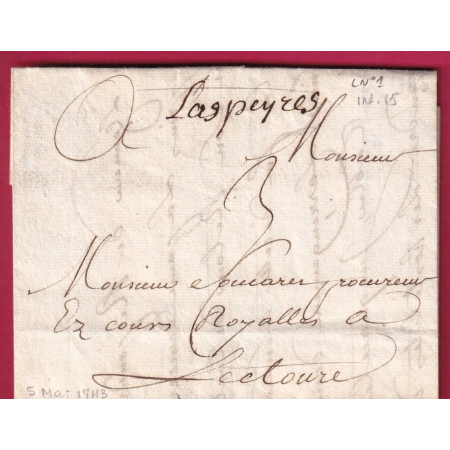 Laspeyres
LN°1
IN.15
Monsieur
3
Monsieur procureur
Ez cours Royalles a
Lectoure
5 Mai 1743